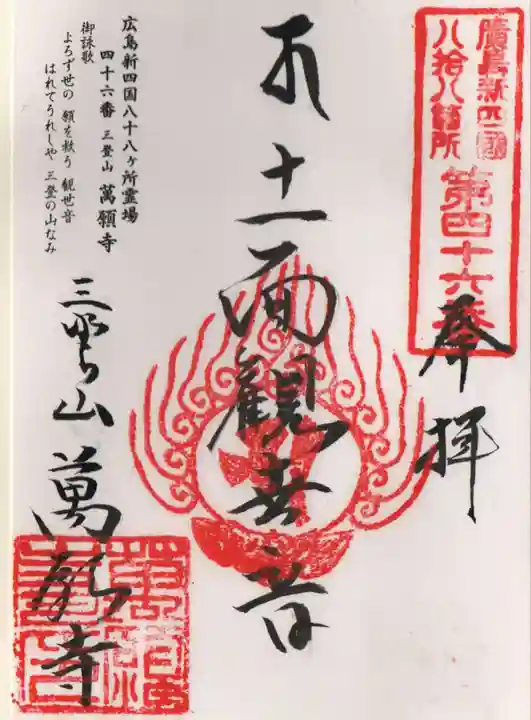 廣島新四國
八拾八箇所
第四十六番
奉拝
十一面觀世音
広島新四国八十八ヶ所霊場
四十六番 三登山 萬願寺
御詠歌
よろず世の 願を救う 観世音
はれてうれしや 三登の山なみ
三登山 萬願寺